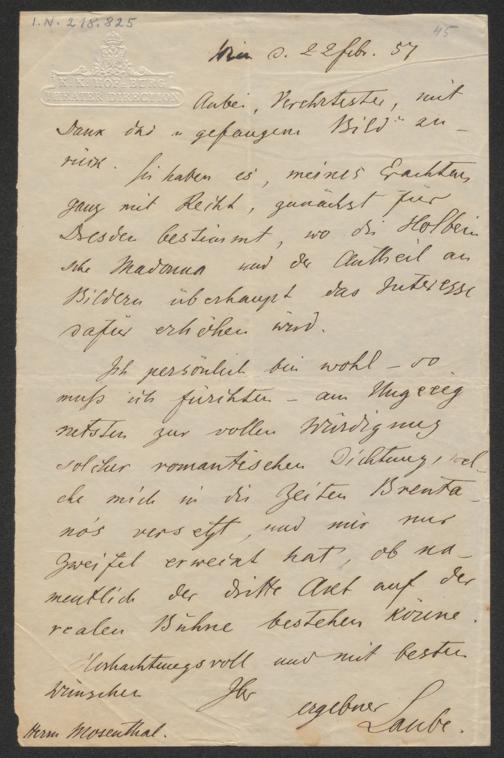 I.N. 218.825
45
K. K. HOF-BURG
THEATER DIRECTION
Wien d. 22 Febr. 57
Anbei, Verehrtester, mit
Dank das „gefangene Bild“ zu-
rück. Sie haben es, meines Erachtens
ganz mit Recht, zunächst für
Dresden bestimmt, wo die Holbein
sche Madonna und der Antheil an
Bildern überhaupt das Interesse
dafür erhöhen wird.
Ich persönlich bin wohl – so
muß ich fürchten – am Ungeeig
netsten zur vollen Würdigung
solcher romantischen Dichtung, wel-
che mich in die Zeiten Brenta-
no's versetzt, und mir nur
Zweifel erweckt hat, ob na-
mentlich der dritte Akt auf der
realen Bühne bestehen könne.
Hochachtungsvoll und mit besten
Wünschen Ihr
ergebner
Laube.
Herrn Mosenthal.